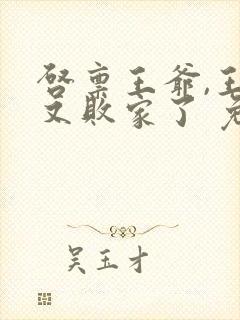 启禀王爷,王
又败家了 免
吴玉才